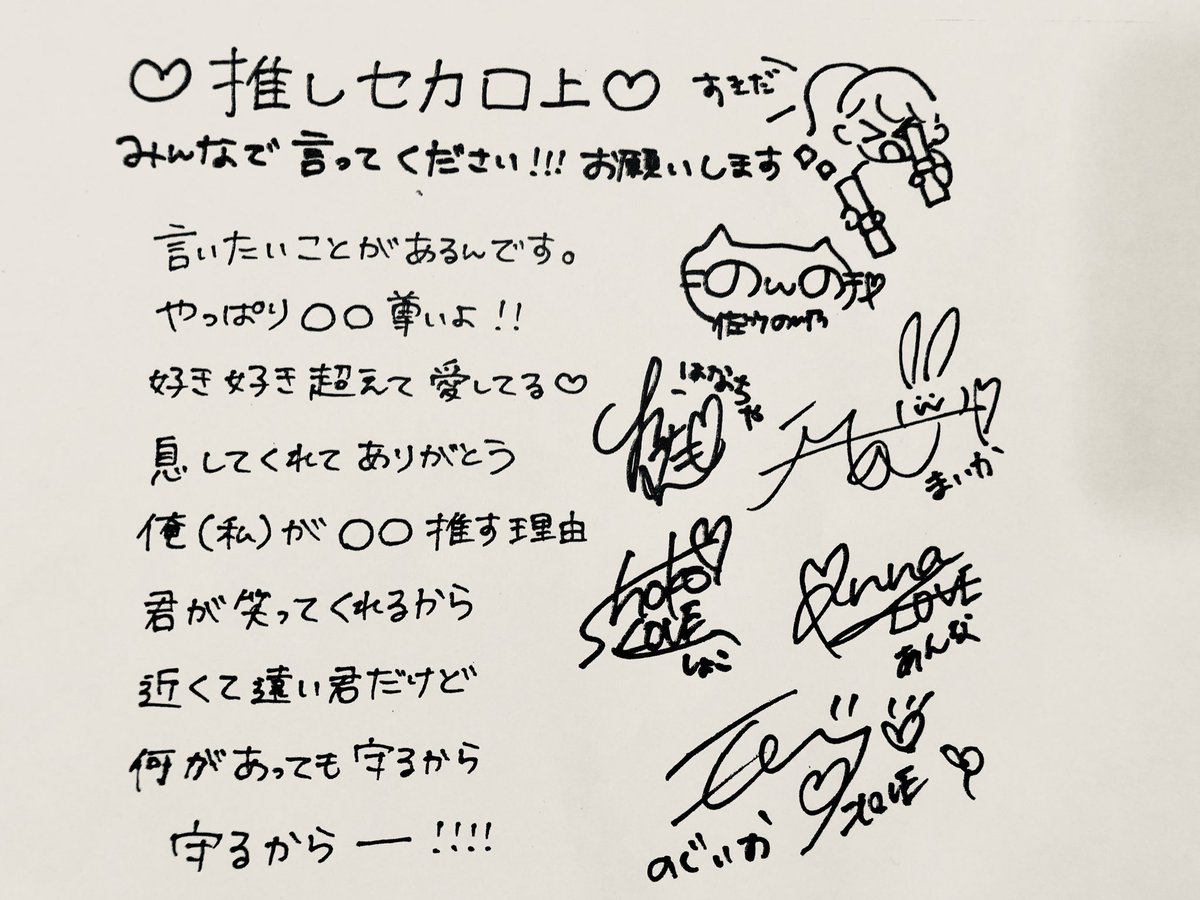 ♡推しセカ口上♡
すそだ
みんなで言ってください!!! お願いします
言いたいことがあるんです。
やっぱり〇〇尊いよ!!
好き好き超えて愛してる♡
息してくれてありがとう
俺(私)が〇〇推す理由
君が笑ってくれるから
近くて遠い君だけど
何があっても守るから
守るからー!!!!
のんの
はなちゃ
まいか
Shoko
LOVE
しょこ
Anna
LOVE
あんな
LOVE
のじいか